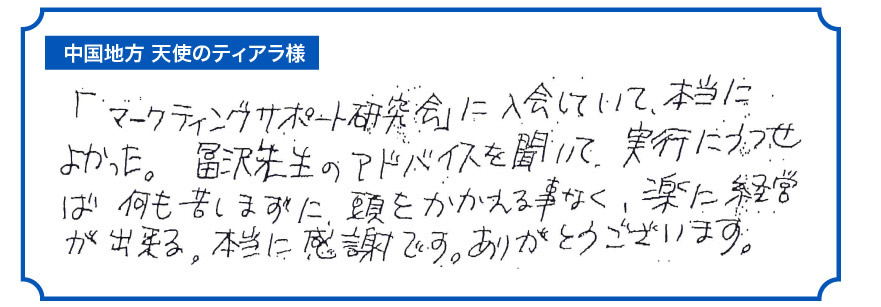 中国地方 天使のティアラ様
「マークティングサポート研究会」に入会していて、本当に
よかった。 冨沢先生のアドバイスを聞いて、実行にうつせ
ば 何も苦しまずに、頭をかかえる事なく、楽に経営
が出来る。本当に感謝です。ありがとうございます。